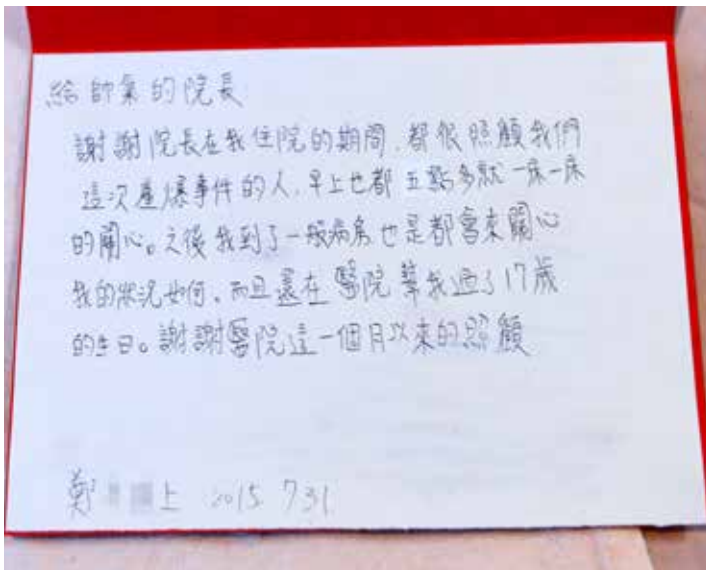 給帥氣的院長
謝謝院長在我住院的期間,都很照顧我們
這次塵爆事件的人,早上也都五點多就一床一床
的關心。之後我到了一般病房也是都會來關心
我的狀況如何,而且還在醫院幫我過了17歲
的生日。謝謝醫院這一個月以來的照顧
鄭 上 2015 731